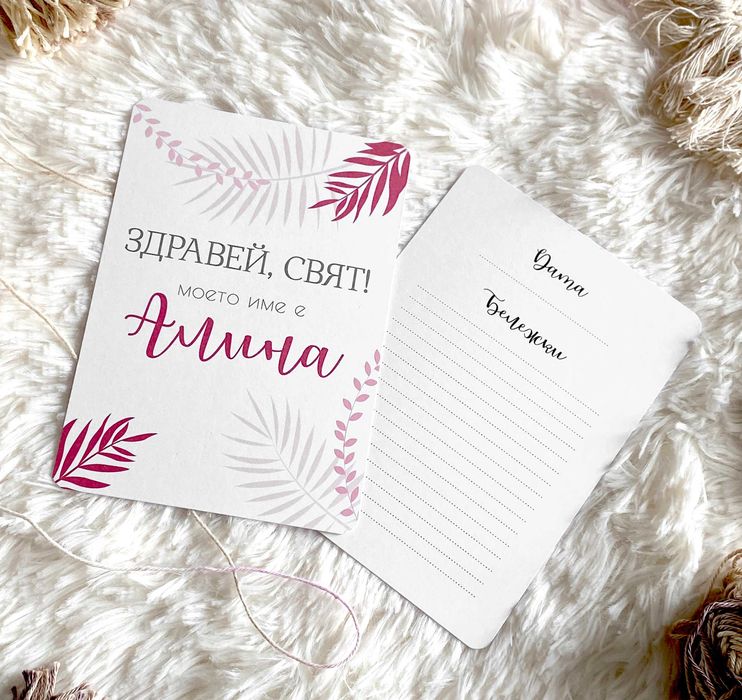 ЗДРАВЕЙ, СВЯТ!
моето име е
Амина
Дата
Бележки